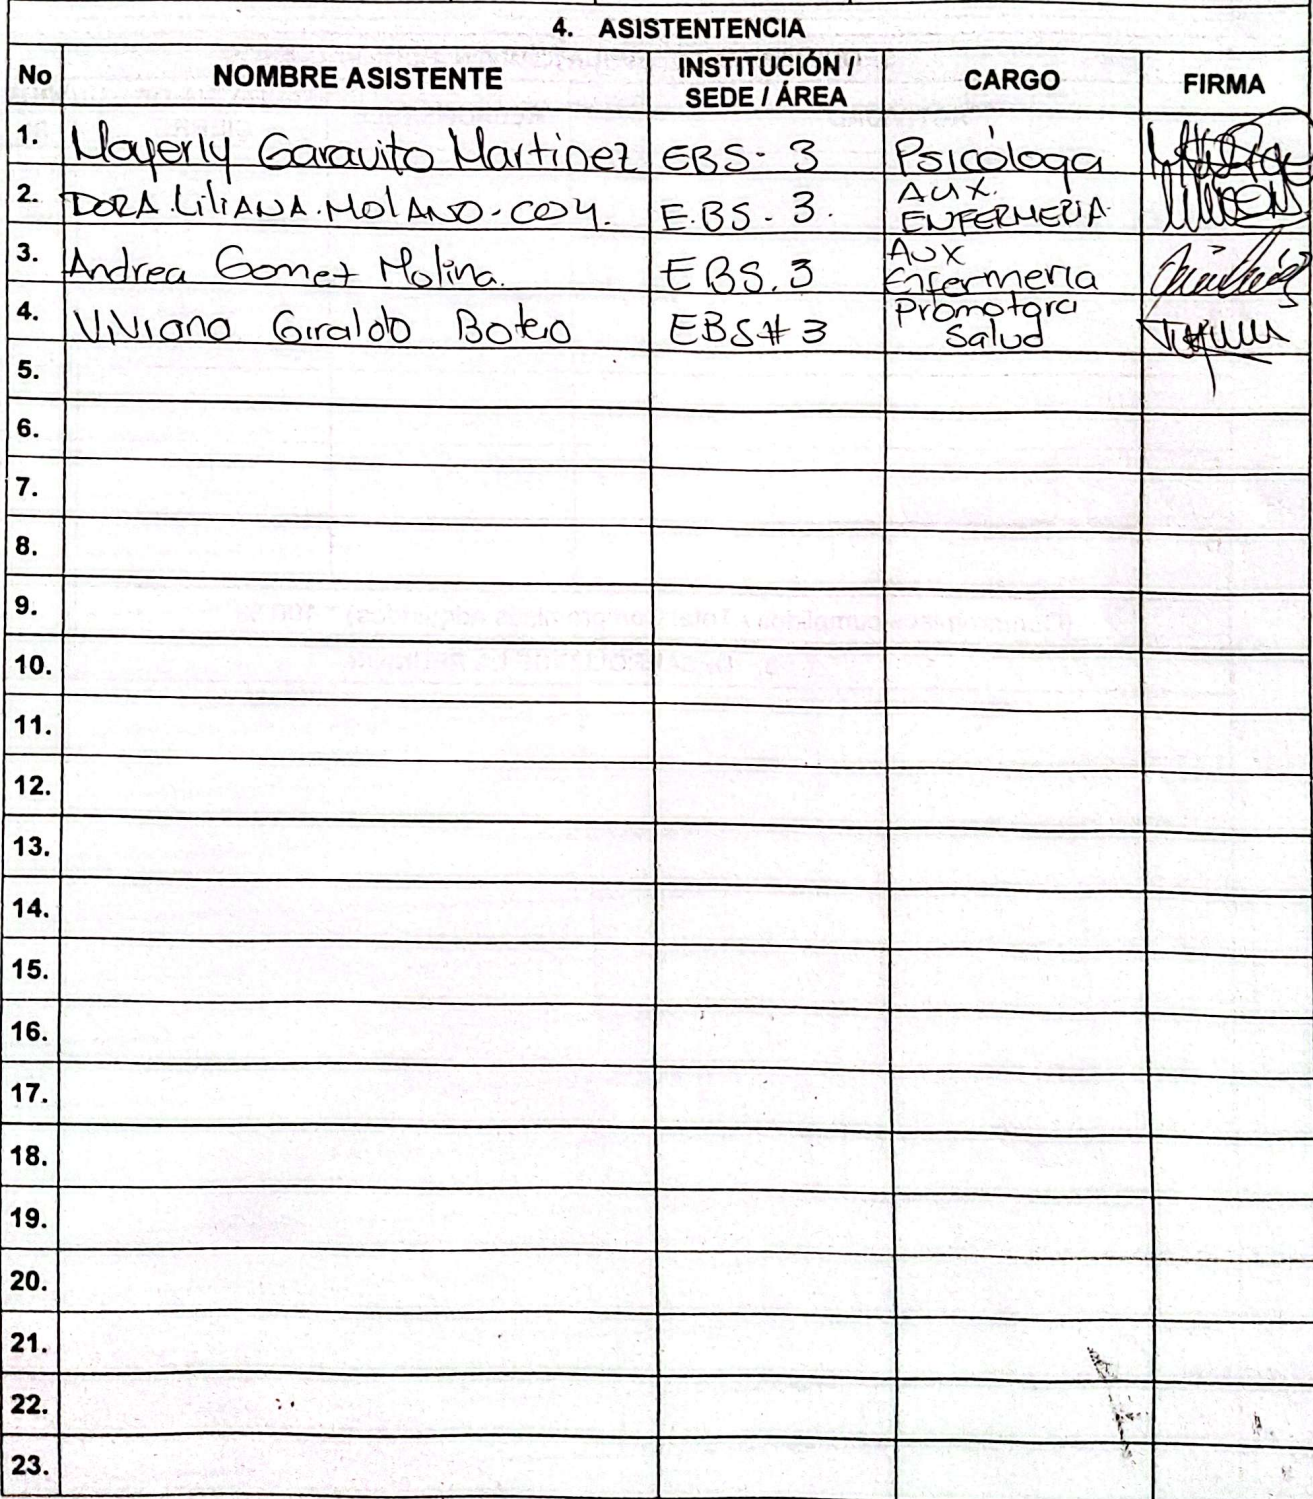 4. ASISTENTENCIA
No NOMBRE ASISTENTE INSTITUCIÓN / SEDE / ÁREA CARGO FIRMA
1. Mayerly Garavito Martinez EBS- 3 Psicóloga
2. DORA.LILIANA.MOLANO.COY. E.BS - 3. AUX. ENFERMERIA.
3. Andrea Gomez Molina. EBS.3 AUX Enfermeria
4. Viviana Giraldo Botero EBS#3 Promotora Salud
5.
6.
7.
8.
9.
10.
11.
12.
13.
14.
15.
16.
17.
18.
19.
20.
21.
22.
23.